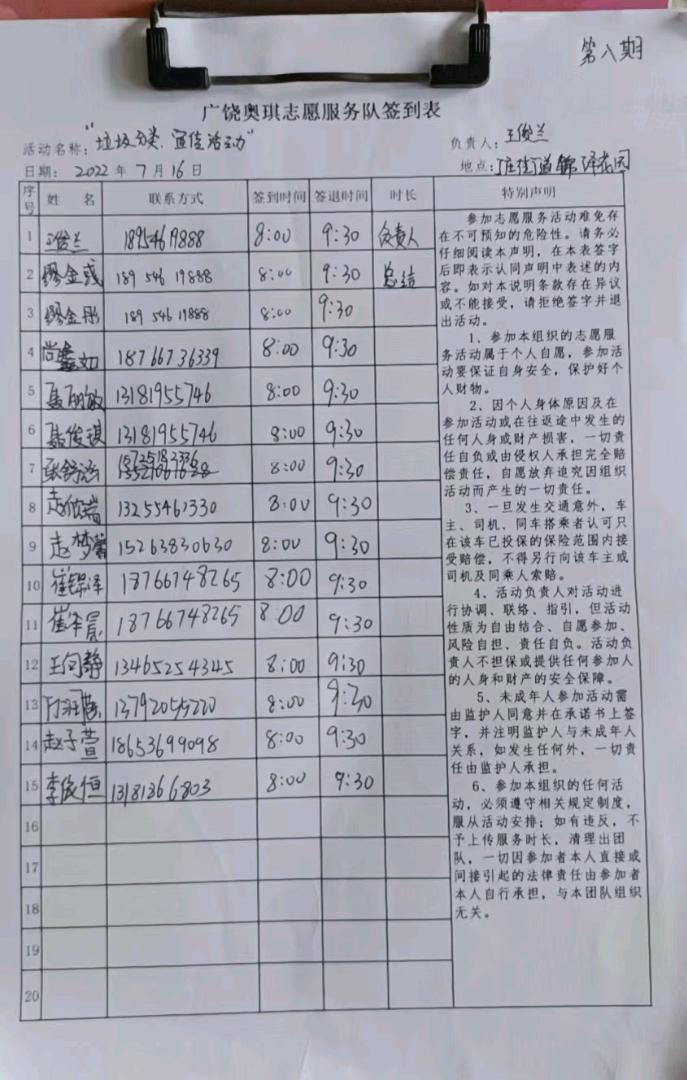 第八期
广饶奥琪志愿服务队签到表
活动名称："垃圾分类.宣传活动"
负责人：王俊兰
日期：2022年7月16日
地点：街道锦泽花园
序号 姓名 联系方式 签到时间 签退时间 时长 特别声明
1 王俊兰 18954619888 8:00 9:30 负责人
2 缪金彧 189 546 19888 8:00 9:30 总结
3 缪金彤 189 546 19888 8:00 9:30
4 尚鑫如 18766736339 8:00 9:30
5 聂丽敏 13181955746 8:00 9:30
6 聂俊琪 13181955746 8:00 9:30
7 张舒涵 8:00 9:30
8 赵欣瑞 13255461330 8:00 9:30
9 赵梦馨 15263830630 8:00 9:30
10 崔锦泽 18766748265 8:00 9:30
11 崔泽晨 18766748265 8:00 9:30
12 王向静 13465254345 8:00 9:30
13 8:00 9:30
14 赵子萱 18653699098 8:00 9:30
15 李俊恒 13181366803 8:00 9:30
16
17
18
19
20
参加志愿服务活动难免存
在不可预知的危险性。请务必
仔细阅读本声明，在本表签字
后即表示认同声明中表述的内
容。如对本说明条款存在异议
或不能接受，请拒绝签字并退
出活动。
1、参加本组织的志愿服
务活动属于个人自愿，参加活
动要保证自身安全，保护好个
人财物。
2、因个人身体原因及在
参加活动或在往返途中发生的
任何人身或财产损害，一切责
任自负或由侵权人承担完全赔
偿责任，自愿放弃追究因组织
活动而产生的一切责任。
3、一旦发生交通意外，车
主、司机、同车搭乘者认可只
在该车已投保的保险范围内接
受赔偿，不得另行向该车主或
司机及同乘人索赔。
4、活动负责人对活动进
行协调、联络、指引，但活动
性质为自由结合、自愿参加、
风险自担、责任自负。活动负
责人不担保或提供任何参加人
的人身和财产的安全保障。
5、未成年人参加活动需
由监护人同意并在承诺书上签
字，并注明监护人与未成年人
关系，如发生任何外，一切责
任由监护人承担。
6、参加本组织的任何活
动，必须遵守相关规定制度，
服从活动安排；如有违反，不
予上传服务时长，清理出团
队，一切因参加者本人直接或
间接引起的法律责任由参加者
本人自行承担，与本团队组织
无关。